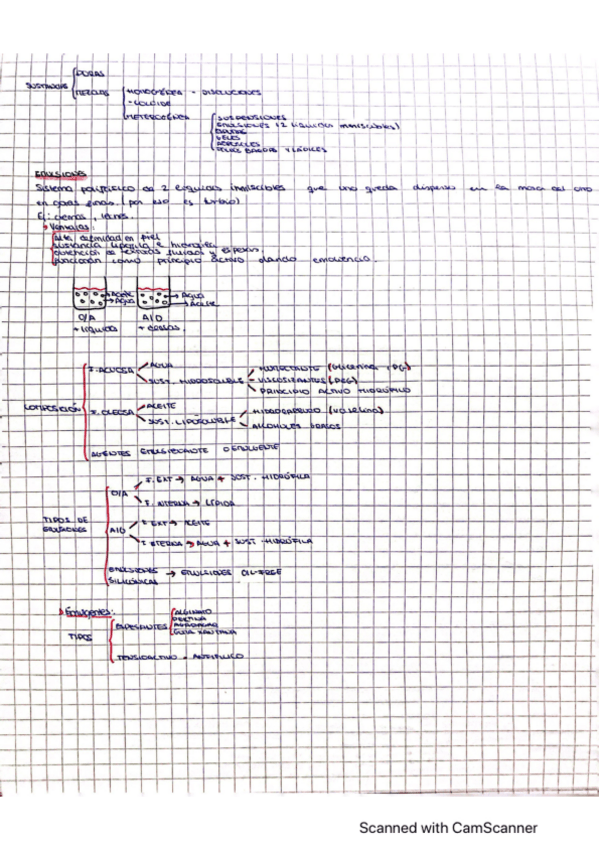 PURAS
SUSTANCIAS
MEZCLAS
HOMOGÉNEA - DISOLUCIONES
- COLOIDE
HETEROGÉNEA
SUSPENSIONES
EMULSIONES (2 líquidos inmiscibles)
GELES
AEROSOLES
EMULSIONES
Sistema polifásico de 2 líquidos inmiscibles que uno queda disperso en la masa del uno
en gotas finas. (por eso es turbio)
Ej: cremas, leches.
Ventajas:
Alta afinidad en piel
Sustancia lipófila e hidrófila
Obtención de texturas fluidas y espesas.
Funcionan como principio activo dando emoliencia.
Aceite
Agua
Agua
Aceite
O/A
A/O
+ líquidas
+ densas.
F. ACUOSA
AGUA
SUST. HIDROSOLUBLE
HUMECTANTE (Glicerina, PG)
VISCOSIZANTES (PEG)
PRINCIPIO ACTIVO HIDRÓFILO
COMPOSICIÓN
F. OLEOSA
ACEITE
SUST. LIPOSOLUBLE
HIDROCARBURO (VASELINA)
ALCOHOLES GRASOS
AGENTES EMULSIONANTE O EMULGENTE
O/A
F. EXT → AGUA + SUST. HIDRÓFILA
F. INTERNA → LÍPIDA
TIPOS DE
EMULSIONES
A/O
F. EXT → ACEITE
F. INTERNA → AGUA + SUST. HIDRÓFILA
EMULSIONES
SILICÓNICAS
→ EMULSIONES OIL-FREE
Emulgentes:
TIPOS
ESPESANTES
ALGINATO
PECTINA
AGAR AGAR
GOMA XANTANA
TENSIOACTIVO - ANFIFÍLICO
Scanned with CamScanner